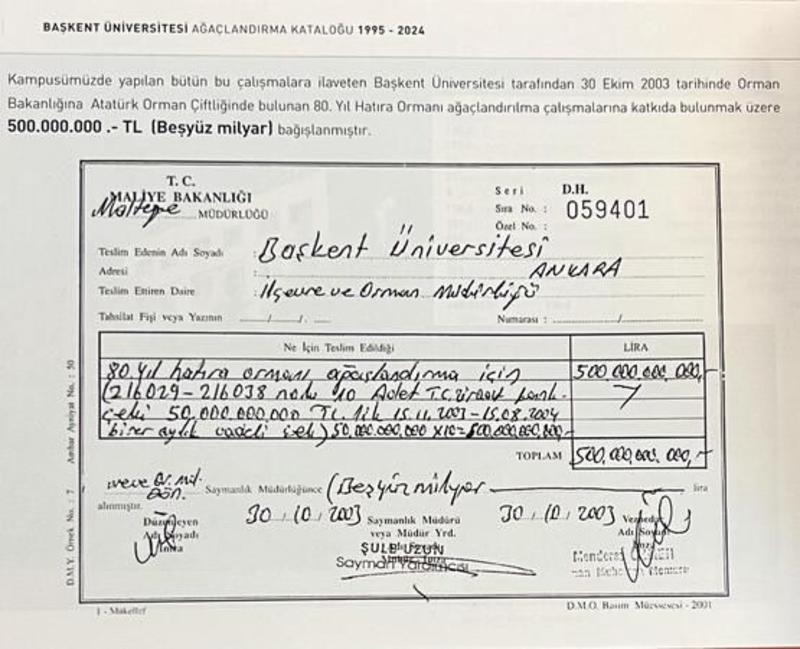 BAŞKENT ÜNİVERSİTESİ AĞAÇLANDIRMA KATALOĞU 1995 - 2024
Kampusümüzde yapılan bütün bu çalışmalara ilaveten Başkent Üniversitesi tarafından 30 Ekim 2003 tarihinde Orman
Bakanlığına Atatürk Orman Çiftliğinde bulunan 80. Yıl Hatıra Ormanı ağaçlandırılma çalışmalarına katkıda bulunmak üzere
500.000.000 .- TL (Beşyüz milyar) bağışlanmıştır.
T. C.
MALİYE BAKANLIĞI
Maltepe MÜDÜRLÜĞÜ
Seri D.H.
Sıra No. : 059401
Özel No. :
Teslim Edenin Adı Soyadı : Başkent Üniversitesi
Adresi : ANKARA
Teslim Ettiren Daire : İl Çevre ve Orman Müdürlüğü
Tahsilat Fişi veya Yazının Numarası :
Ne İçin Teslim Edildiği LİRA
80. yıl hatıra ormanı ağaçlandırma için 500.000.000.000,-
(216029-216038 nolu 10 Adet T.C. Ziraat bank.
çeki 50.000.000.000 TL. lik 15.11.2003-15.08.2004
birer aylık vadeli çek) 50.000.000.000 x10=500.000.000.000-
TOPLAM 500.000.000.000,-
Saymanlık Müdürlüğünce (Beşyüzmilyar lira
alınmıştır.
30/10/2003 30/10/2003
Düzenleyen Saymanlık Müdürü
Adı Soyadı veya Müdür Yrd. Adı
İmza ŞULE UZUN
Sayman Yardımcısı
Menderes
D.M.Y. Örnek No. : 7 Ambar Ayniyat No. : 50
1 - Makellef D.M.O. Basım Müessesesi - 2001